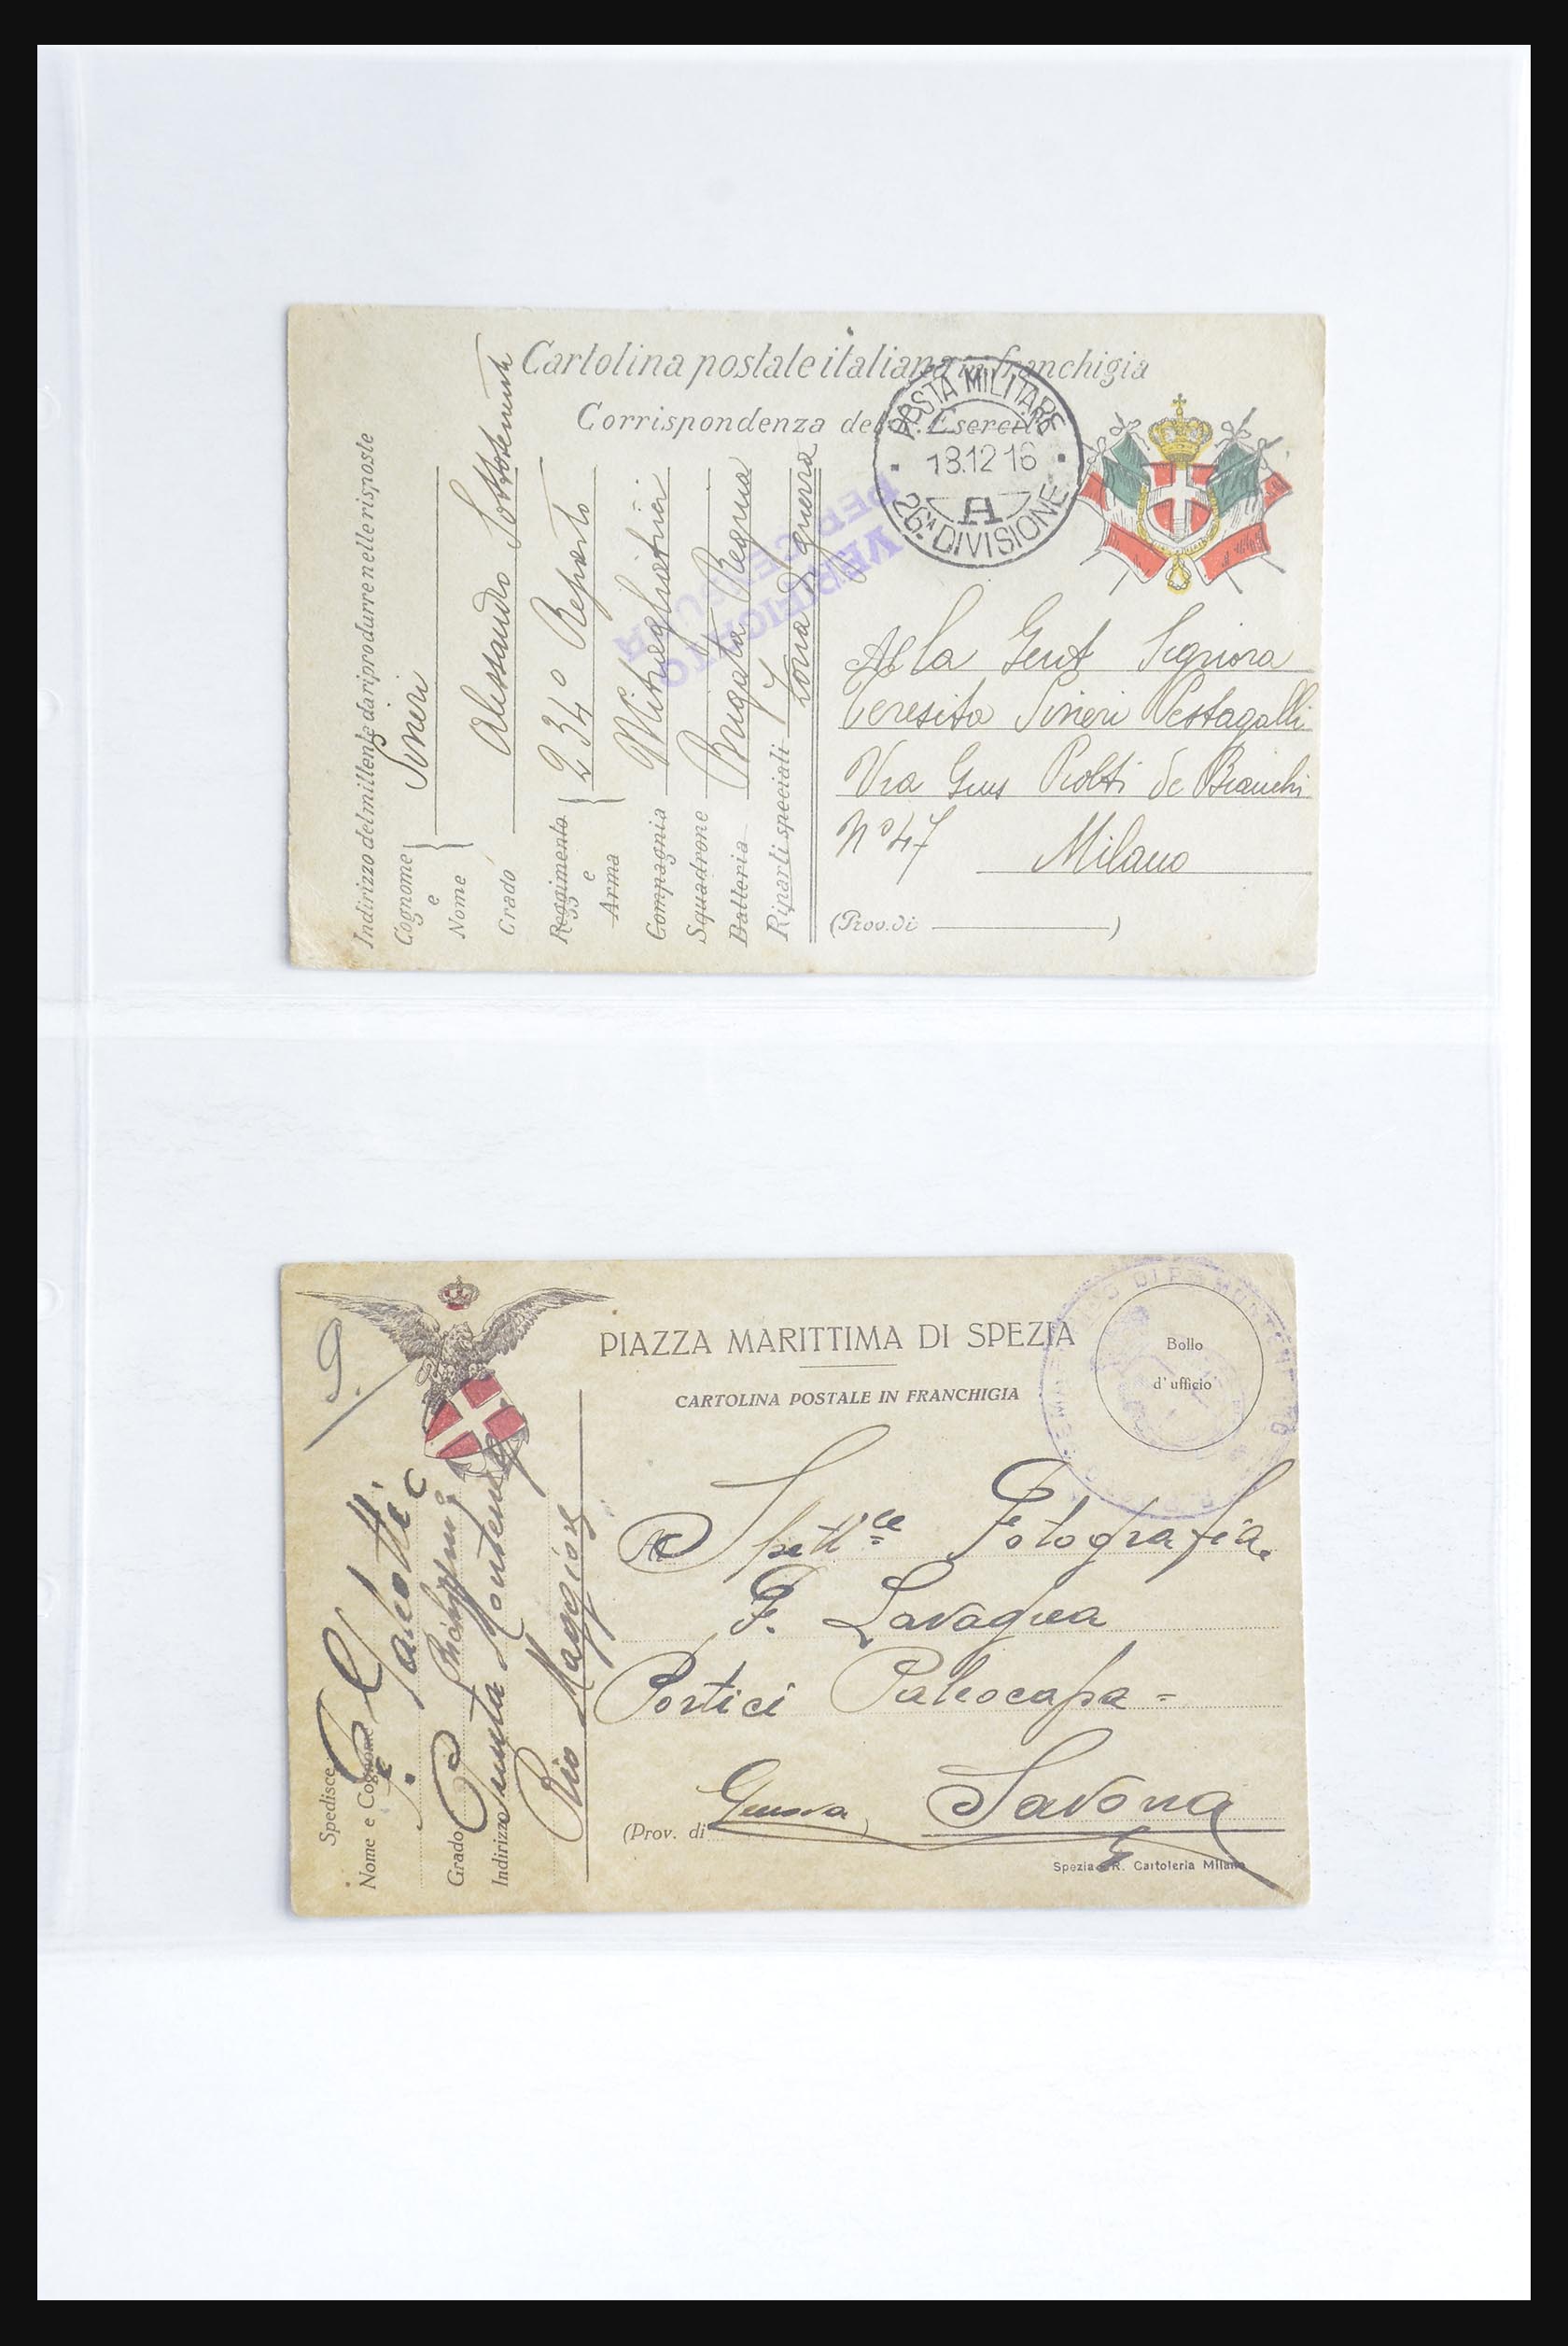 Cartolina postale italiana in franchigia
Corrispondenza del R. Esercito
POSTA MILITARE
18.12 16
A
26ª DIVISIONE
VERIFICATO
PER CENSURA
Indirizzo del mittente da riprodurre nelle risposte
Cognome
e
Nome
Sineri
Alessandro Sottotenente
Grado
Reggimento
e
Arma
234º Reparto
Compagnia
Mitragliatrici
Squadrone
Batteria
Riparti speciali
Zona di guerra
Alla Gent Signora
Teresita Sineri Pestagalli
Via Gius Piolti de Bianchi
Nº 47
Milano
(Prov. di )
PIAZZA MARITTIMA DI SPEZIA
CARTOLINA POSTALE IN FRANCHIGIA
Bollo
d'ufficio
Spedisce
Nome e Cognome
Grado
Indirizzo
Punta Montenero
Rio Maggiore
Spett.ce Fotografia
F. Lavagna
Portici Paleocapa =
(Prov. di Genova) Savona
Spezia - R. Cartoleria Milano